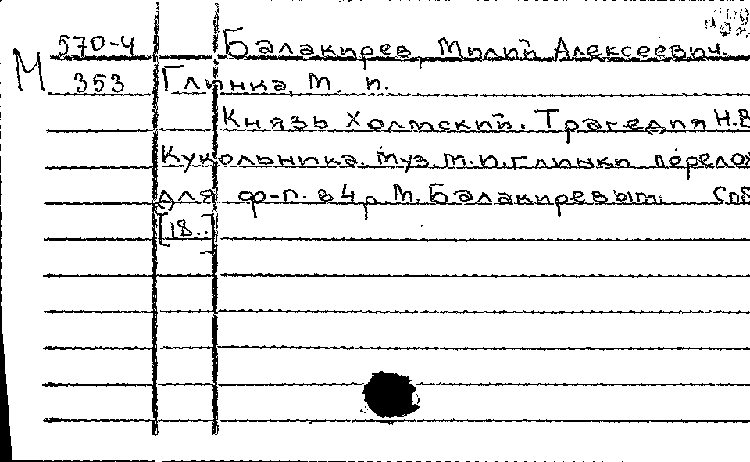 570-4 Балакирев, Милий Алексеевич.
М 353 Глинка, М. И.
Князь Холмский. Трагедия Н.В
Кукольника. Муз. М.И. Глинки перелож
для ф-п. в 4 р М. Балакиревым. Спб
[18..]